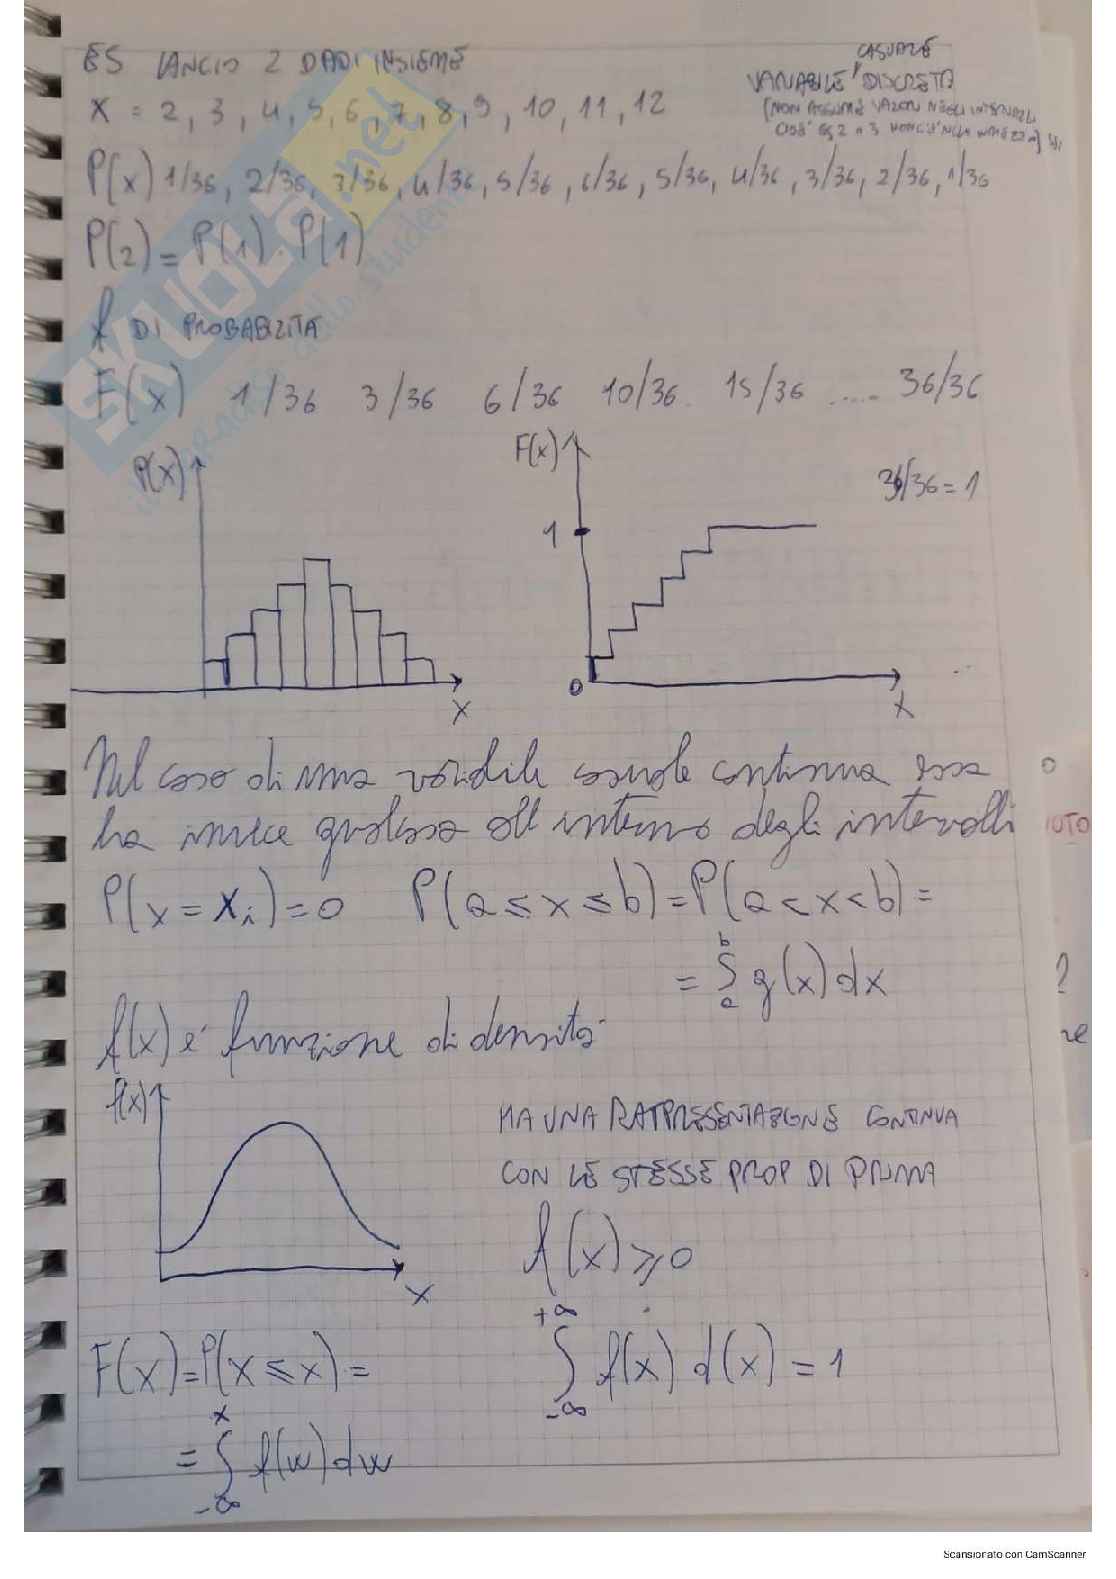 ES LANCIO 2 DADI INSIEME
CASUALE
VARIABILE DISCRETA
(NON ASSUME VALORI NEGLI INTERVALLI
X = 2, 3, 4, 5, 6, 7, 8, 9, 10, 11, 12
P(x) 1/36, 2/36, 3/36, 4/36, 5/36, 6/36, 5/36, 4/36, 3/36, 2/36, 1/36
P(2) = P(1) · P(1)
f DI PROBABILITA
F(x) 1/36 3/36 6/36 10/36 15/36 .... 36/36
P(x)
F(x)
36/36 = 1
1
0
X
X
Nel caso di una variabile casuale continua essa
ha invece qualcosa all'interno degli intervalli
P(x = xi) = 0 P(a ≤ x ≤ b) = P(a < x < b) =
= ∫ab g(x) dx
f(x) è funzione di densità
f(x)
X
HA UNA RAPPRESENTAZIONE CONTINUA
CON LE STESSE PROP DI PRIMA
f(x) ≥ 0
F(x) = P(X ≤ x) =
= ∫-∞x f(w) dw
∫-∞+∞ f(x) d(x) = 1
SKUOLA.net
Scansionato con CamScanner